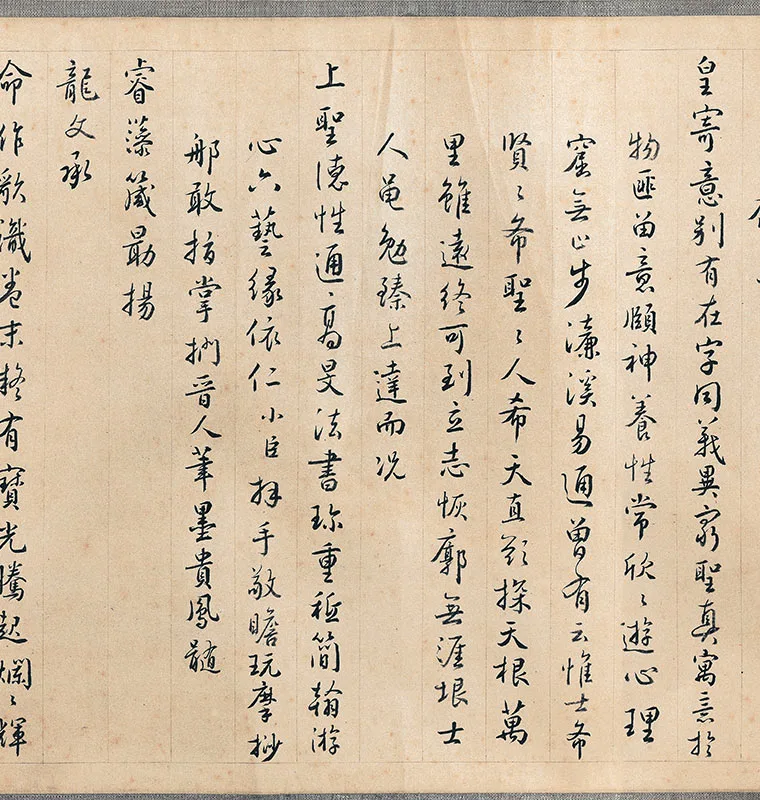 皇寄意別有在字同義異窮聖真寓意於
物匪留意頤神養性常欣〻遊心理
窟無止步濂溪易通曾有云惟士希
賢〻希聖〻人希天直欲探天根萬
里雖遠終可到立志恢廓無涯垠士
人黽勉臻上達而況
上聖德性通高旻法書珍重秪簡翰游
心六藝緣依仁小臣拜手敬瞻玩摩挱
那敢指掌捫晉人筆墨貴鳳髓
睿藻箴勗揚
龍文承
命作歌識卷末有寶光騰起爛〻輝